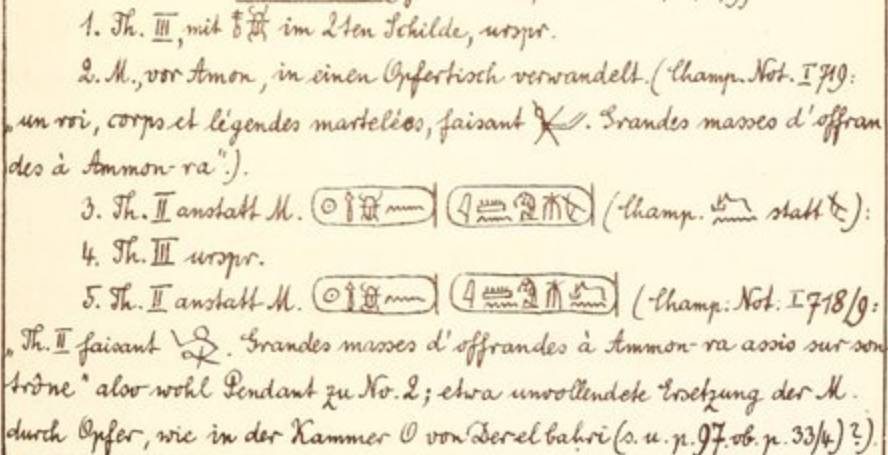 1. Th. III, mit im 2ten Schilde, urspr.
2. M., vor Amon, in einen Opfertisch verwandelt. (Champ. Not. I 719:
„un roi, corps et légendes martelées, faisant . Grandes masses d'offran
des à Ammon-ra“.).
3. Th. II anstatt M. (Champ. statt ):
4. Th. III urspr.
5. Th. II anstatt M. (Champ: Not. I 718/9:
„Th. II faisant . Grandes masses d'offrandes à Ammon-ra assis sur son
trône“ also wohl Pendant zu No. 2; etwa unvollendete Ersetzung der M.
durch Opfer, wie in der Kammer O von Der el bahri (s. u. p. 97. ob. p. 33/4)?).